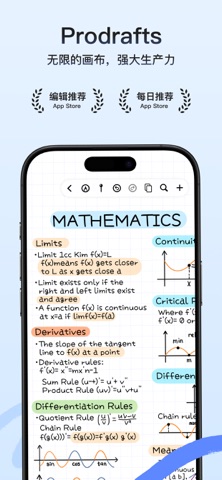 Prodrafts
无限的画布，强大生产力
编辑推荐
App Store
每日推荐
App Store
MATHEMATICS
Limits
• Limit 1cc Kim f(x)=L
f(x)means f(x) gets closer
to L as x gets close a
• Limit exists only if the
right and left limits exist
and agree
• A function f(x) is continuous
at x=a if limf(x)=f(a)
Derivatives
• The slope of the tangent
line to f(x) at a point
• Derivative rules:
f'(x)= x"=mx n-1
Sum Rule (u-+)'= u'+ v'
Product Rule (uv)'=u'v+u'
Differentiation Rules
• Quotient Rule
Chain Rule
f(g(x)))'=f(g(x))=f'g(x) g'(x)
sin
cos
tan
Continuit
Critical P
Where f'(
f'(x)= 0 or
Different
Chain rule
Mean
Continuous